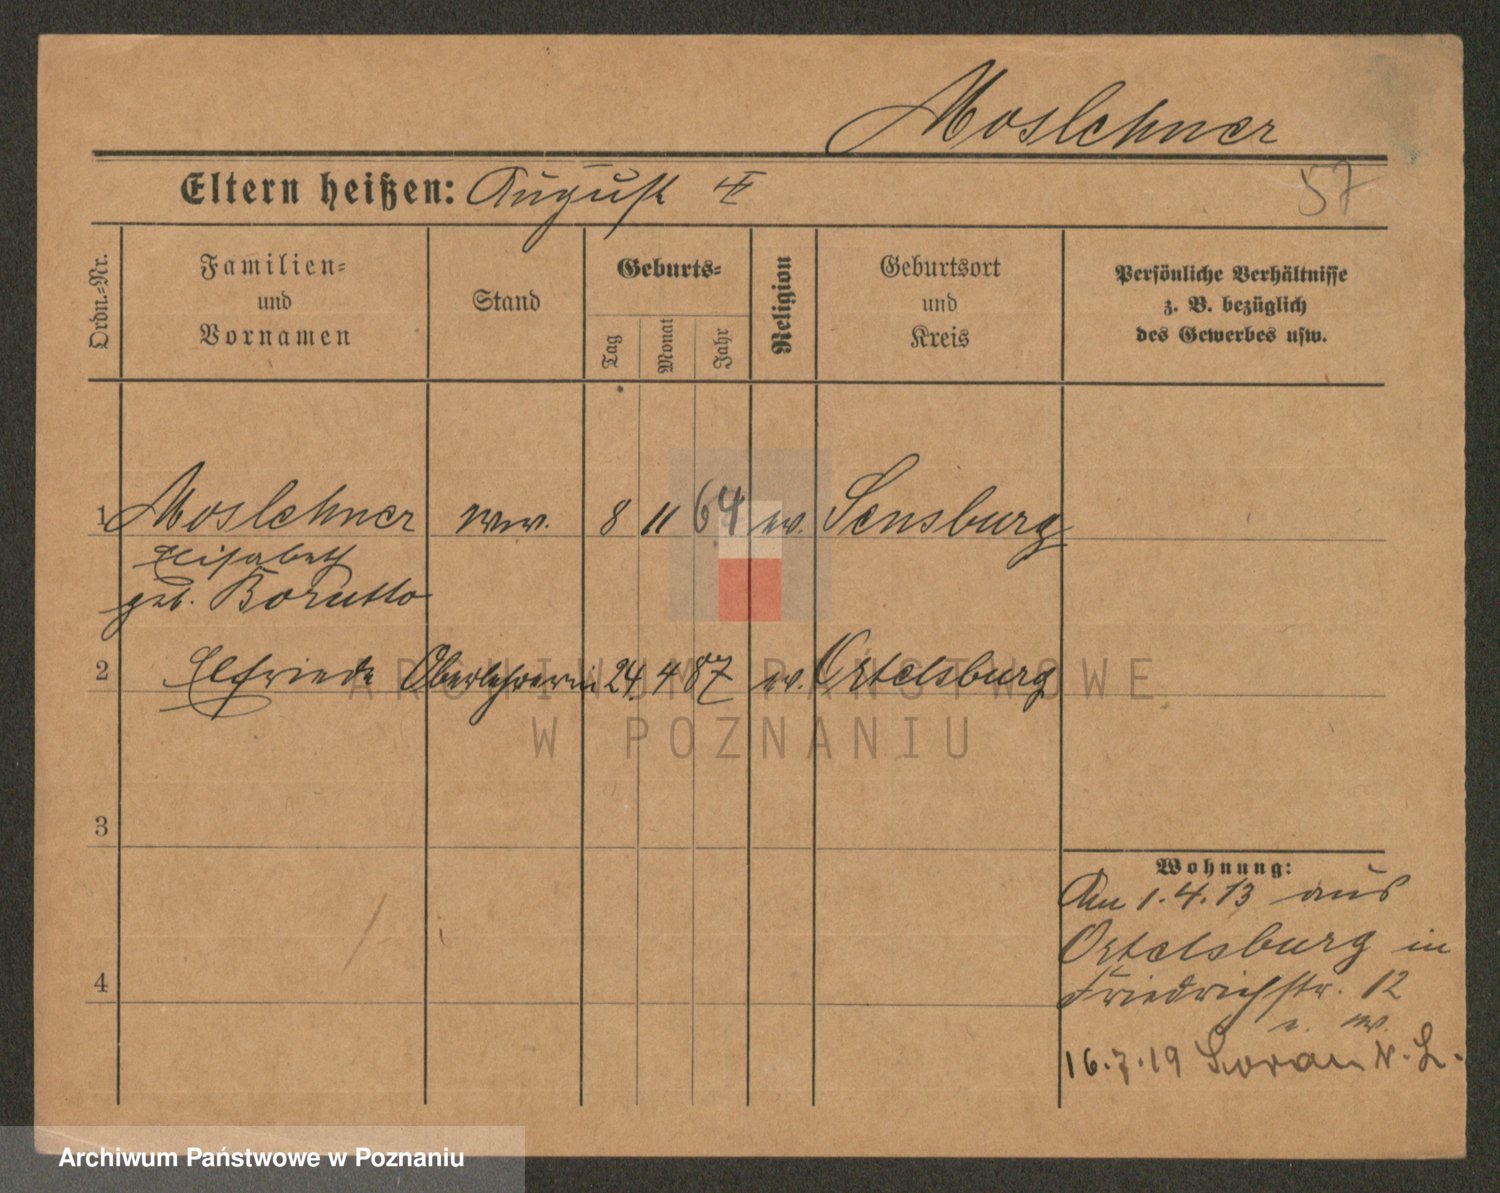 Moslehner
Eltern heißen: August
57
Ordn.-Nr.
Familien-
und
Vornamen
Stand
Geburts-
Tag
Monat
Jahr
Religion
Geburtsort
und
Kreis
Persönliche Verhältnisse
z. B. bezüglich
des Gewerbes usw.
1 Moslehner Wwe. 8 11 64 ev. Sensburg
Elisabeth
geb. Borutto
2 Elfriede Oberlehrerin 24. 4 87 ev. Ortelsburg
3
4
Wohnung:
Am 1.4.13 aus
Ortelsburg in
Friedrichstr. 12
16.7.19 Sorau N.L.
ARCHIWUM PAŃSTWOWE
W POZNANIU
Archiwum Państwowe w Poznaniu